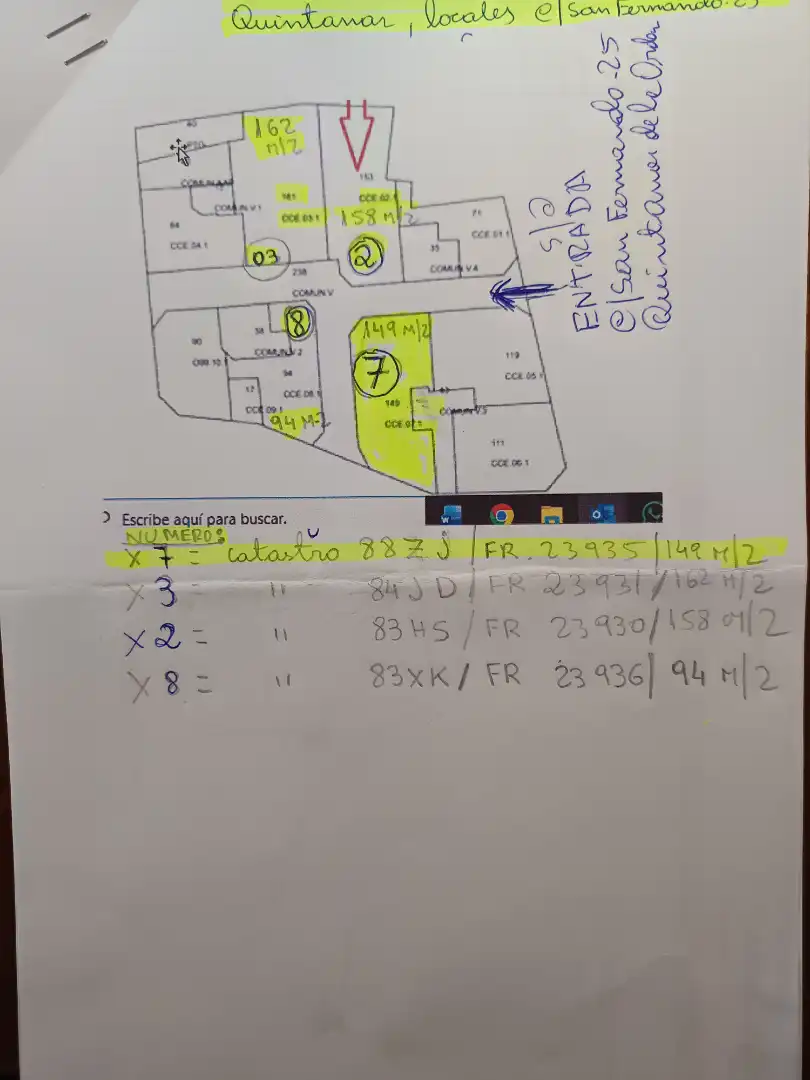 Quintanar, locales c/San Fernando-25
ENTRADA
c/San Fernando-25
Quintanar de la Orden
162
M/2
181
CCE.03.1
163
CCE.02.1
158 M/2
COMUN.V.1
64
CCE.04.1
03
2
71
CCE.01.1
35
COMUN.V.4
238
COMUN.V
90
58
8
COMUN.V.2
94
CCE.08.1
17
CCE.09.1
94 M-2
149 M/2
7
149
CCE.07.1
COMUN.V.3
119
CCE.05.1
111
CCE.06.1
Escribe aquí para buscar.
NUMERO:
X 7 = catastro 88ZJ / FR. 23935 / 149 M/2
X 3 = " 84JD / FR 23931 / 162 M/2
X 2 = " 83HS / FR 23930 / 158 M/2
X 8 = " 83XK / FR 23936 / 94 M/2